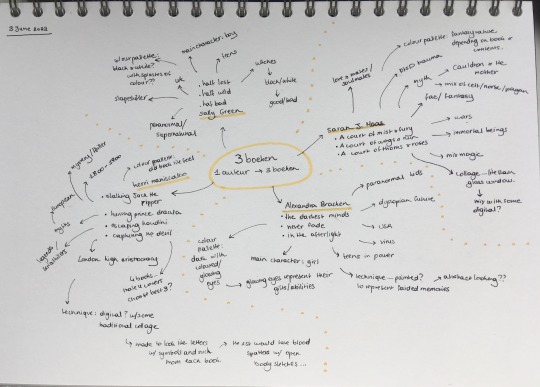 3 June 2022
3 boeken
1 auteur → 3 boeken
colour palette:
black & white?
with splashes of
colour??
main character: boy
teens
uk
shapeshifter
paranormal/
supernatural
• half lost
• half wild
• half bad
Sally Green
witches
black/white
good/bad
Sarah J. Maas
• A court of mist & fury
• A court of wings & ruin
• A court of thorns & roses
love & mates/
soulmates
colour palette: fantasy nature
depending on book &
contents.
ptsd trauma
myth
cauldron & the
mother
→ mix of celt/norse/pagan
fae/fantasy
wars
immortal beings
mix magic
collage
window.
mix with some
digital?
Alexandra Bracken
• the darkest minds
• never fade
• in the afterlight
paranormal kids
dystopian future
USA
virus
teens in power
technique → painted?
abstract looking??
to represent faded memories
main character: girl
colour
palette:
dark with
coloured/
glowing
eyes
glowing eyes represent their
gifts/abilities
Kerri Maniscalco
• stalking Jack the
ripper
• hunting prince dracula
• escaping houdini
• capturing the devil
colour palette:
old book like feel
mystery/thriller
1800-1900
european
myths
legends
serial killers
London high aristocracy
4 books →
make 4 covers
choose best 3?
technique: digital? w/some
traditional collage
made to look like letters
w/ symbols and such
from each book.
→ the 1st would have blood
spatters w/ open
body sketches...